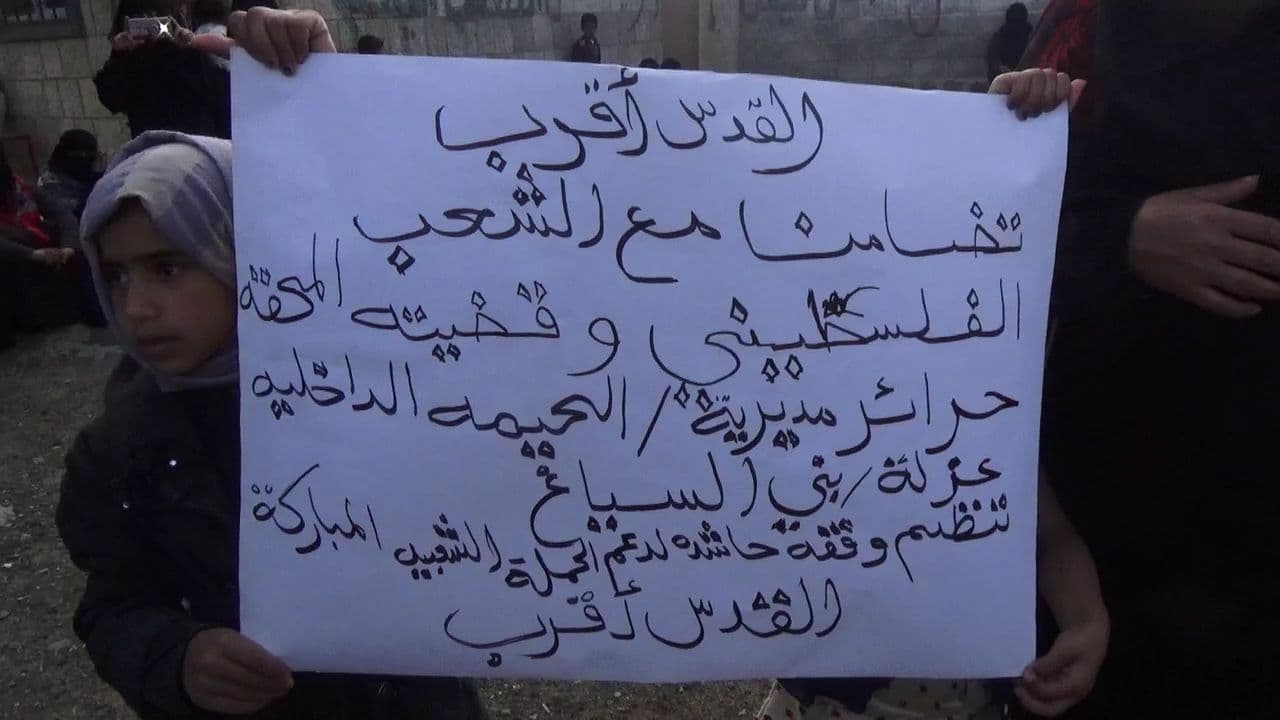 القدس أقرب
تضامنا مع الشعب
الفلسطيني وقضيته المحقة
حرائر مديرية / الحيمه الداخليه
عزلة / بني السياغ
تنظيم وقفة حاشده لدعم الحملة الشعبيه المباركة
القدس أقرب